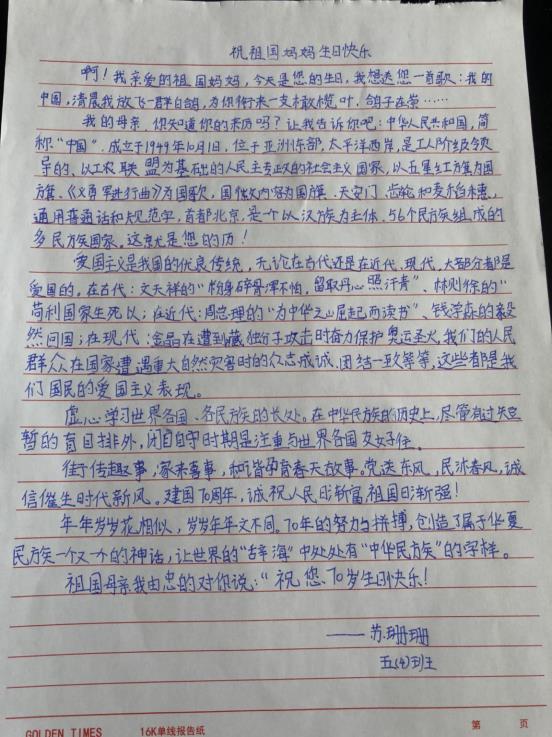 祝祖国妈妈生日快乐
啊！我亲爱的祖国妈妈，今天是您的生日，我想送您一首歌：我的
中国，清晨我放飞一群白鸽，为你衔来一支橄榄叶，鸽子在崇……
我的母亲，你知道你的来历吗？让我告诉你吧：中华人民共和国，简
称"中国"，成立于1949年10月1日，位于亚洲东部，太平洋西岸，是工人阶级领
导的，以工农联盟为基础的人民主专政的社会主义国家，以五星红旗为国
旗、《义勇军进行曲》为国歌，国徽内容为国旗、天安门、齿轮和麦稻穗，
通用普通话和规范字，首都北京，是个以汉族为主体、56个民族组成的
多民族国家。这就是您的历！
爱国主义是我国的优良传统，无论在古代还是在近代、现代，大部分都是
爱国的，在古代：文天祥的"粉身碎骨浑不怕，留取丹心照汗青"、林则徐的"
苟利国家生死以；在近代：周总理的"为中华之山屈起而读书"、钱学森的毅
然回国；在现代：金晶在遭到藏独分子攻击时奋力保护奥运圣火，我们的人民
群众在国家遭遇重大自然灾害时的众志成诚、团结一致等等，这些都是我
们国民的爱国主义表现。
虚心学习世界各国、各民族的长处。在中华民族的历史上，尽管有过
暂的盲目排外，闭自守时期是注重与世界各国友好
往于传趣事，家来喜事，和谐孕育春天故事。党送东风，民沐春风，诚
信催生时代新风。建国70周年，诚祝人民日渐富祖国日渐强！
年年岁岁花相似，岁岁年年文不同。70年的努力与拼搏，创造了属于华夏
民族一个又一个的神话，让世界的"辞海"中处处有"中华民族"的字样。
祖国母亲我由忠的对你说："祝您、70岁生日快乐！
——苏珊珊
五(4)班
GOLDEN TIMES 16K单线报告纸 第 页